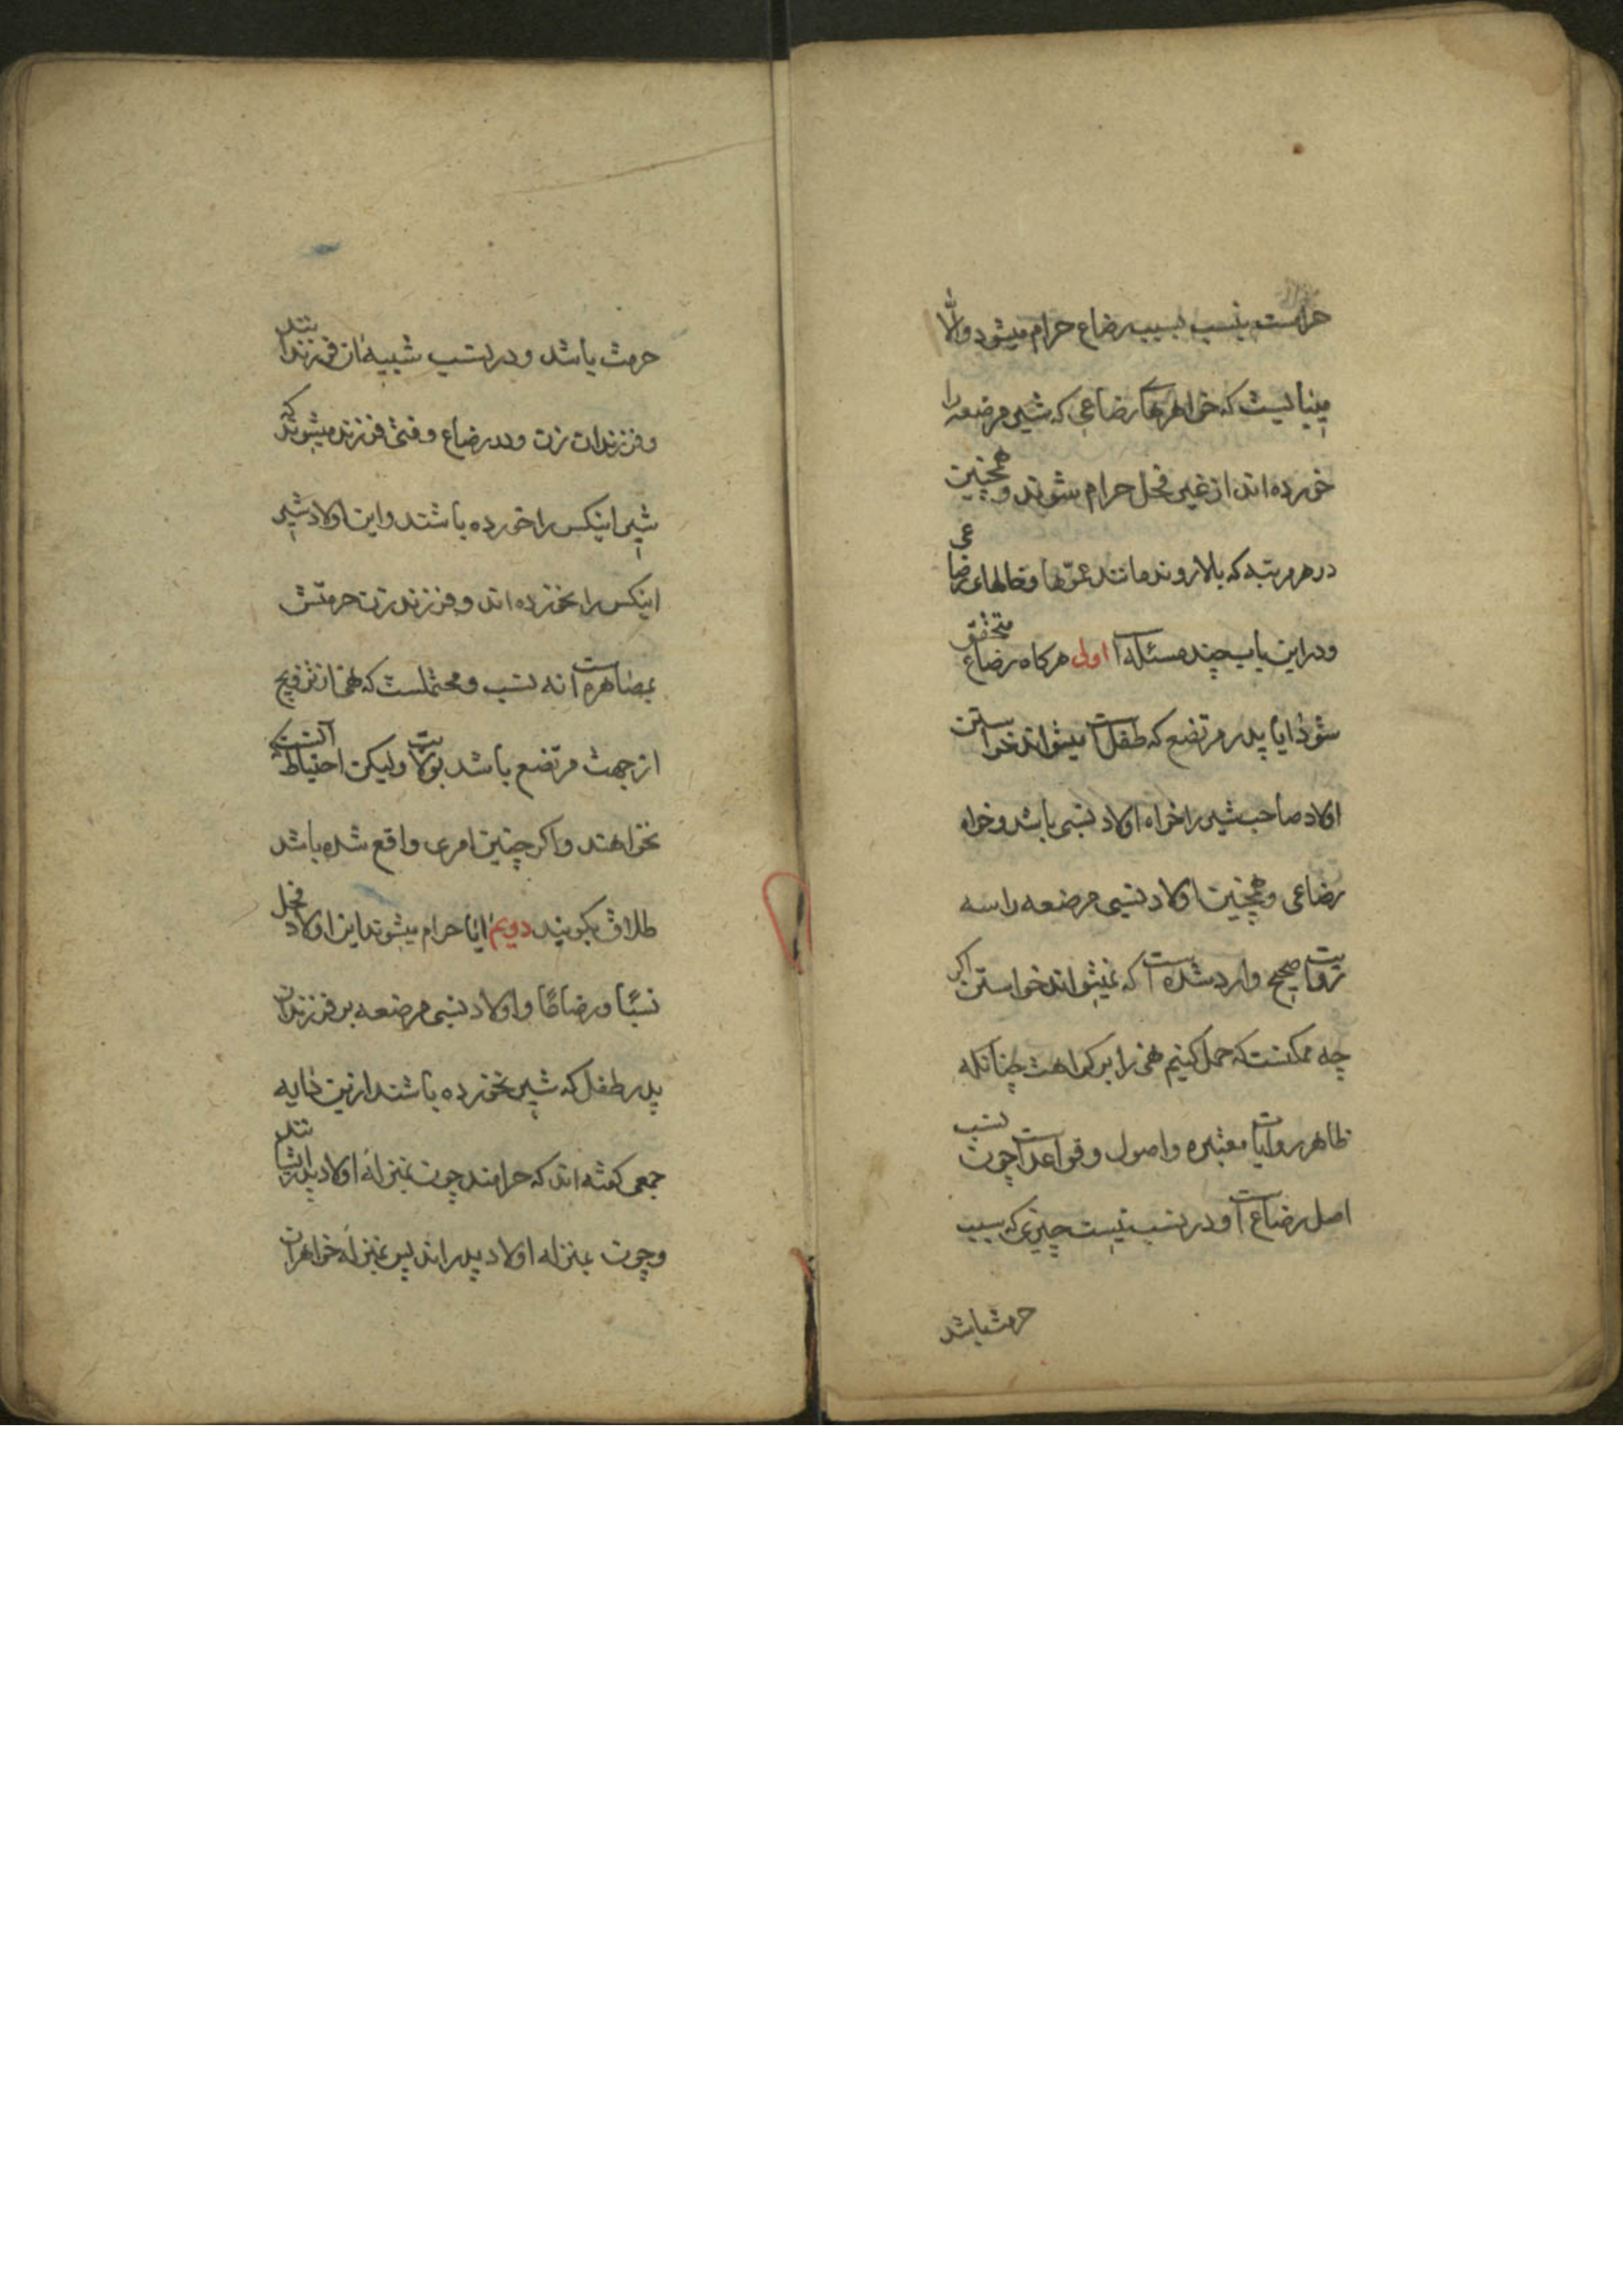 حرامست بنسب بسبب رضاع حرام میشود والا
میبایست که خواهرهای رضاعی که شیر مرضعه را
خورده اند از غیر فحل حرام شوند و همچنین
در هر مرتبه که بالا روند مانند عمّها و خالهای رضاعی
و در این باب چند مسئله است اولی هرگاه رضاع متحقق
شود ایا پدر مرتضع که طفل است میتواند خواستن
اولاد صاحب شیر را خواه اولاد نسبی باشد و خواه
رضاعی و همچنین اولاد نسبی مرضعه را سه
روایت صحیح وارد شده است که نمیتواند خواستن اگر
چه ممکنست که حمل کنیم نهی را بر کراهت چنانکه
ظاهر روایات معتبره و اصول و قواعد است چون نسب
اصل رضاع است و در نسب نیست چیزی که سبب
حرمت باشد
حرمت باشد و در نسب شبیه ان فرزندانند
و فرزندان زن و در رضاع وقتی فرزند میشوند که
شیر اینکس را خورده باشند و این اولاد شیر
اینکس را نخورده اند و فرزند زن حرمتش
بمصاهره است نه نسب و محتملست که نهی از تزویج
از جهت مرتضع باشد بولایت ولیکن احتیاط آنست که
نخواهند و اگر چنین امری واقع شده باشد
طلاق بگویند دویم ایا حرام میشوند این اولاد فحل
نسبًا و رضاعًا و اولاد نسبی مرضعه بر فرزندان
پدر طفل که شیر نخورده باشند ازین دایه
جمعی گفته اند که حرامند چون بمنزله اولاد پدر ایشانند
و چون بمنزله اولاد پدراند پس بمنزله خواهران